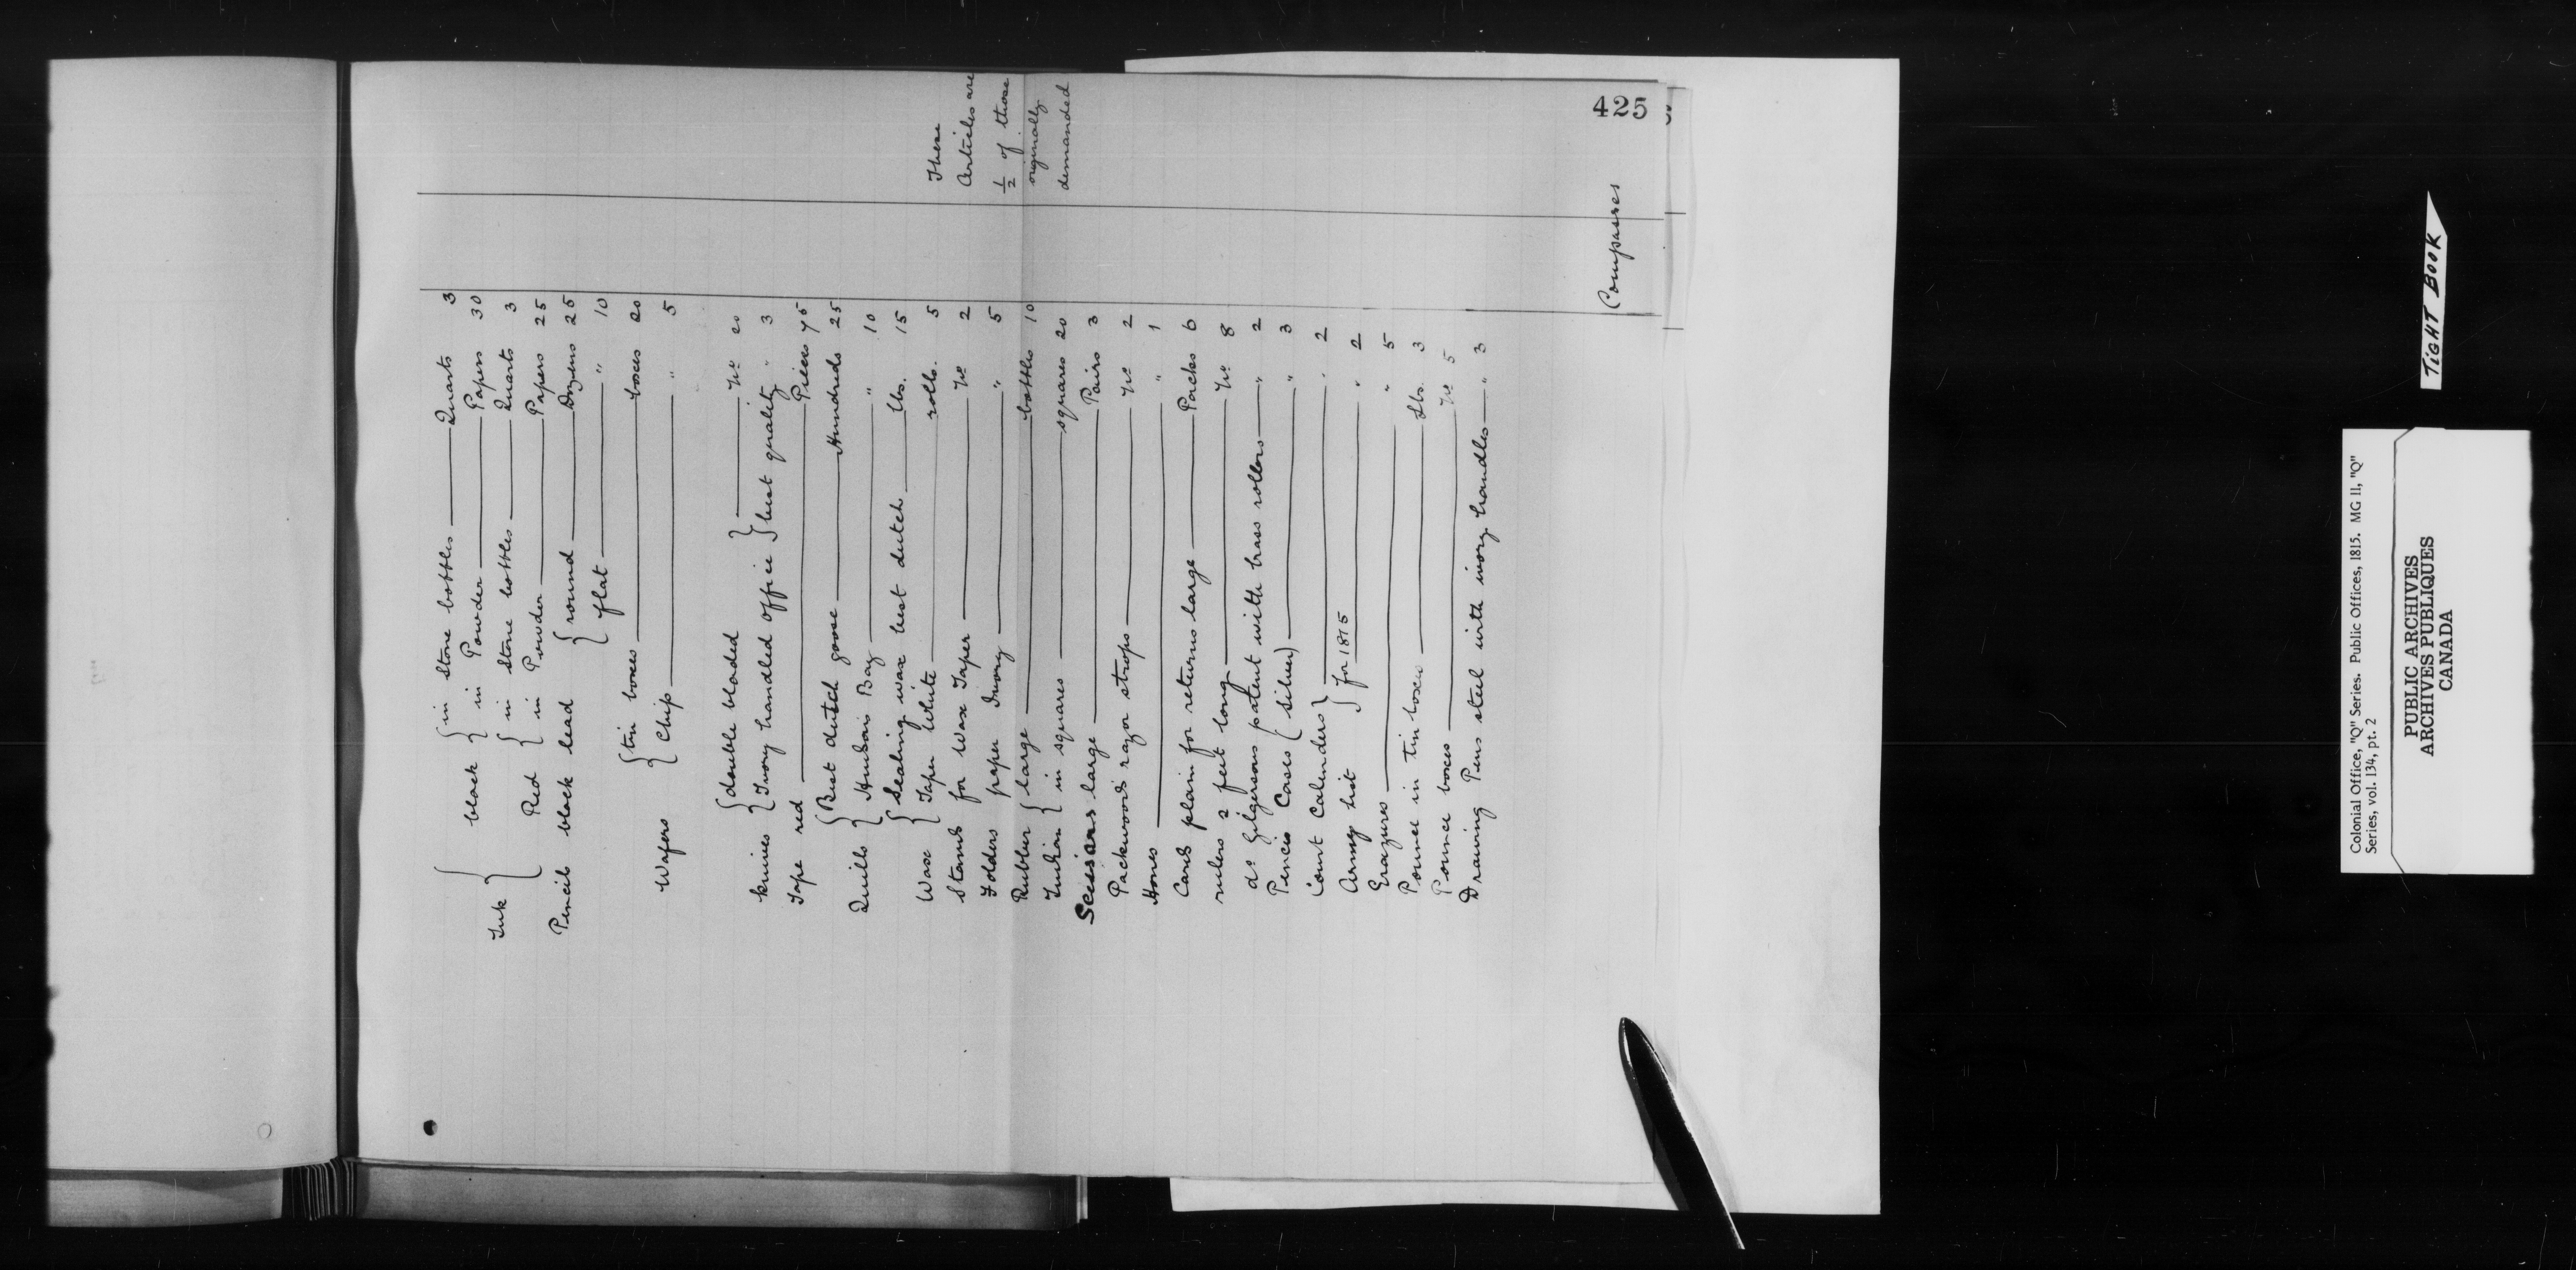 425
Ink { black { in stone bottles — Quarts 3
{ in Powder — Papers 30
Red { in stone bottles — Quarts 3
{ in Powder — Papers 25
Pencils black lead { round — Dozens 25
{ flat — " 10
Wafers { tin boxes — boxes 20
{ Chip — " 5
knives { double bladed } — No 20
{ Ivory handled office } best quality " 3
Tape red — Pieces 75
Quills { Best dutch goose — Hundreds 25
{ Hudson Bay — " 10
Wax { Sealing wax best dutch — lbs. 15
{ Taper White — rolls. 5
Stands for Wax Taper — No 2
Folders paper Ivory — " 5
Rubber { large — bottles 10
Indian { in squares — squares 20
Scissars large — Pairs 3
Packwood's razor strops — No 2
Hones — " 1
Cards plain for returns large — Packs 6
rulers 2 feet long — No 8
do Gilgersons patent with brass rollers — " 2
Pencis Cases (silver) — " 3
Court Calenders } — " 2
Army list } for 1815 — " 2
Erazures — " 5
Pounce in tin boxes — lbs. 3
Pounce boxes — No 5
Drawing Pens steel with ivory handles — " 3
These
Articles are
½ of those
originally
demanded
Compasses
TIGHT BOOK
Colonial Office, "Q" Series. Public Offices, 1815. MG 11, "Q"
Series, vol. 134, pt. 2
PUBLIC ARCHIVES
ARCHIVES PUBLIQUES
CANADA